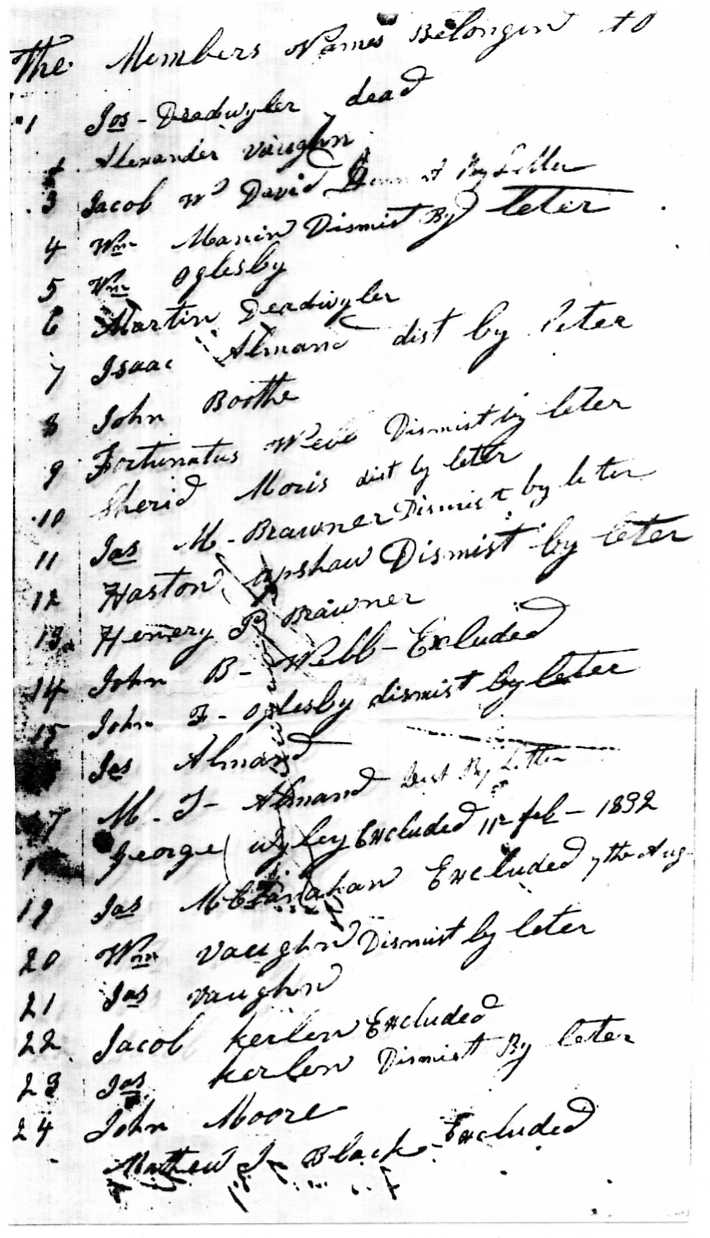 The Members Names Belongin to
1 Jos - Deadwyler dead
2 Alexander Vaughn
3 Jacob W David By Letter
4 Wm Manin Dismist By leter
5 Wm Oglesby
6 Martin Deadwyler
7 Isaac Almand dist by leter
8 John Boothe
9 Fortunatus Webb Dismist by leter
10 Sherid Moris dist by leter
11 Jas M - Brawner Dismist by leter
12 Haston upshaw Dismist by leter
13 Henery P Brawner
14 John B - Webb - Exluded
15 John F - oglesby dismist by leter
Jas Almand
7 M - T - Almand Dist By Letter
1 George Wyley Excluded 11 feb - 1832
19 Jas McClanahan Excluded 7 the Aug
20 Wm Vaughn Dismist by leter
21 Jas Vaughn
22 Jacob kerlen Excluded
23 Jas kerlen Dismist By leter
24 John Moore
Mathew J Black - Excluded